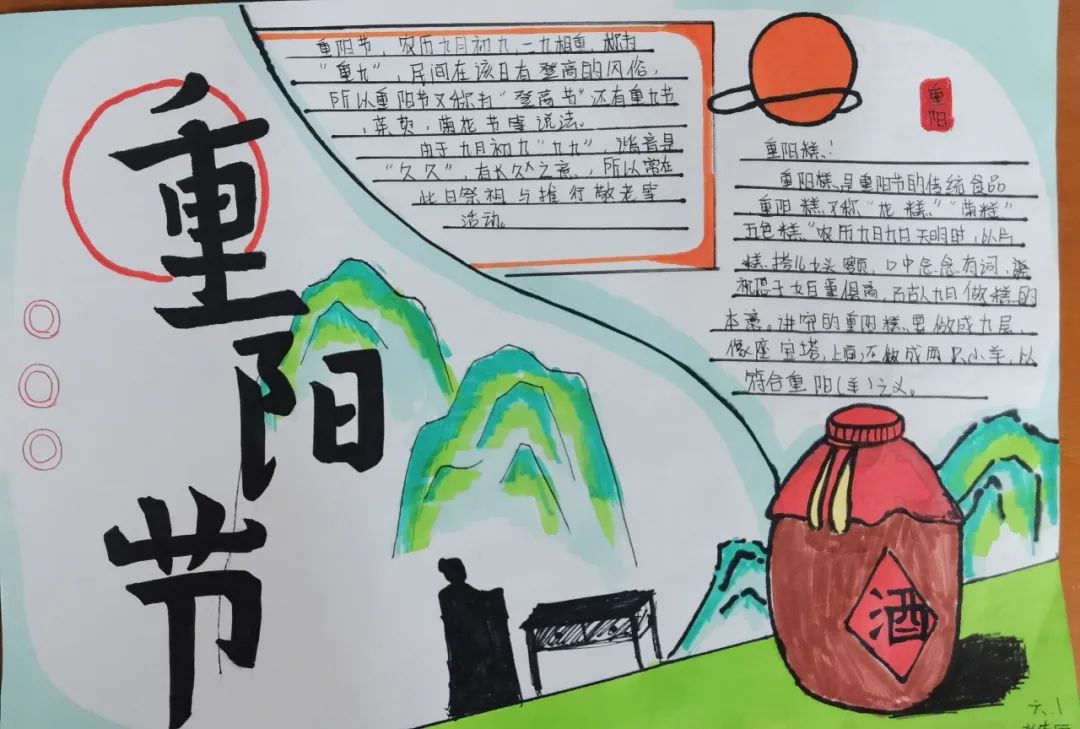 重阳节
重阳节，农历九月初九，二九相重，称为
“重九”，民间在该日有登高的风俗，
所以重阳节又称为“登高节”还有重九节
，茱萸，菊花节等说法。
由于九月初九“九九”，谐音是
“久久”，有长久之意，所以常在
此日祭祖与推行敬老等
活动。
重阳
重阳糕！
重阳糕是重阳节的传统食品
，重阳糕又称“花糕”“菊糕”
五色糕”农历九日九日天明时，以片
糕搭儿女头额，口中念念有词，
祝愿子女百事俱高，乃古人九日做糕的
本意。讲究的重阳糕要做成九层
像座宝塔，上面还做成两只小羊，以
符合重阳（羊）之义。
酒
六.1